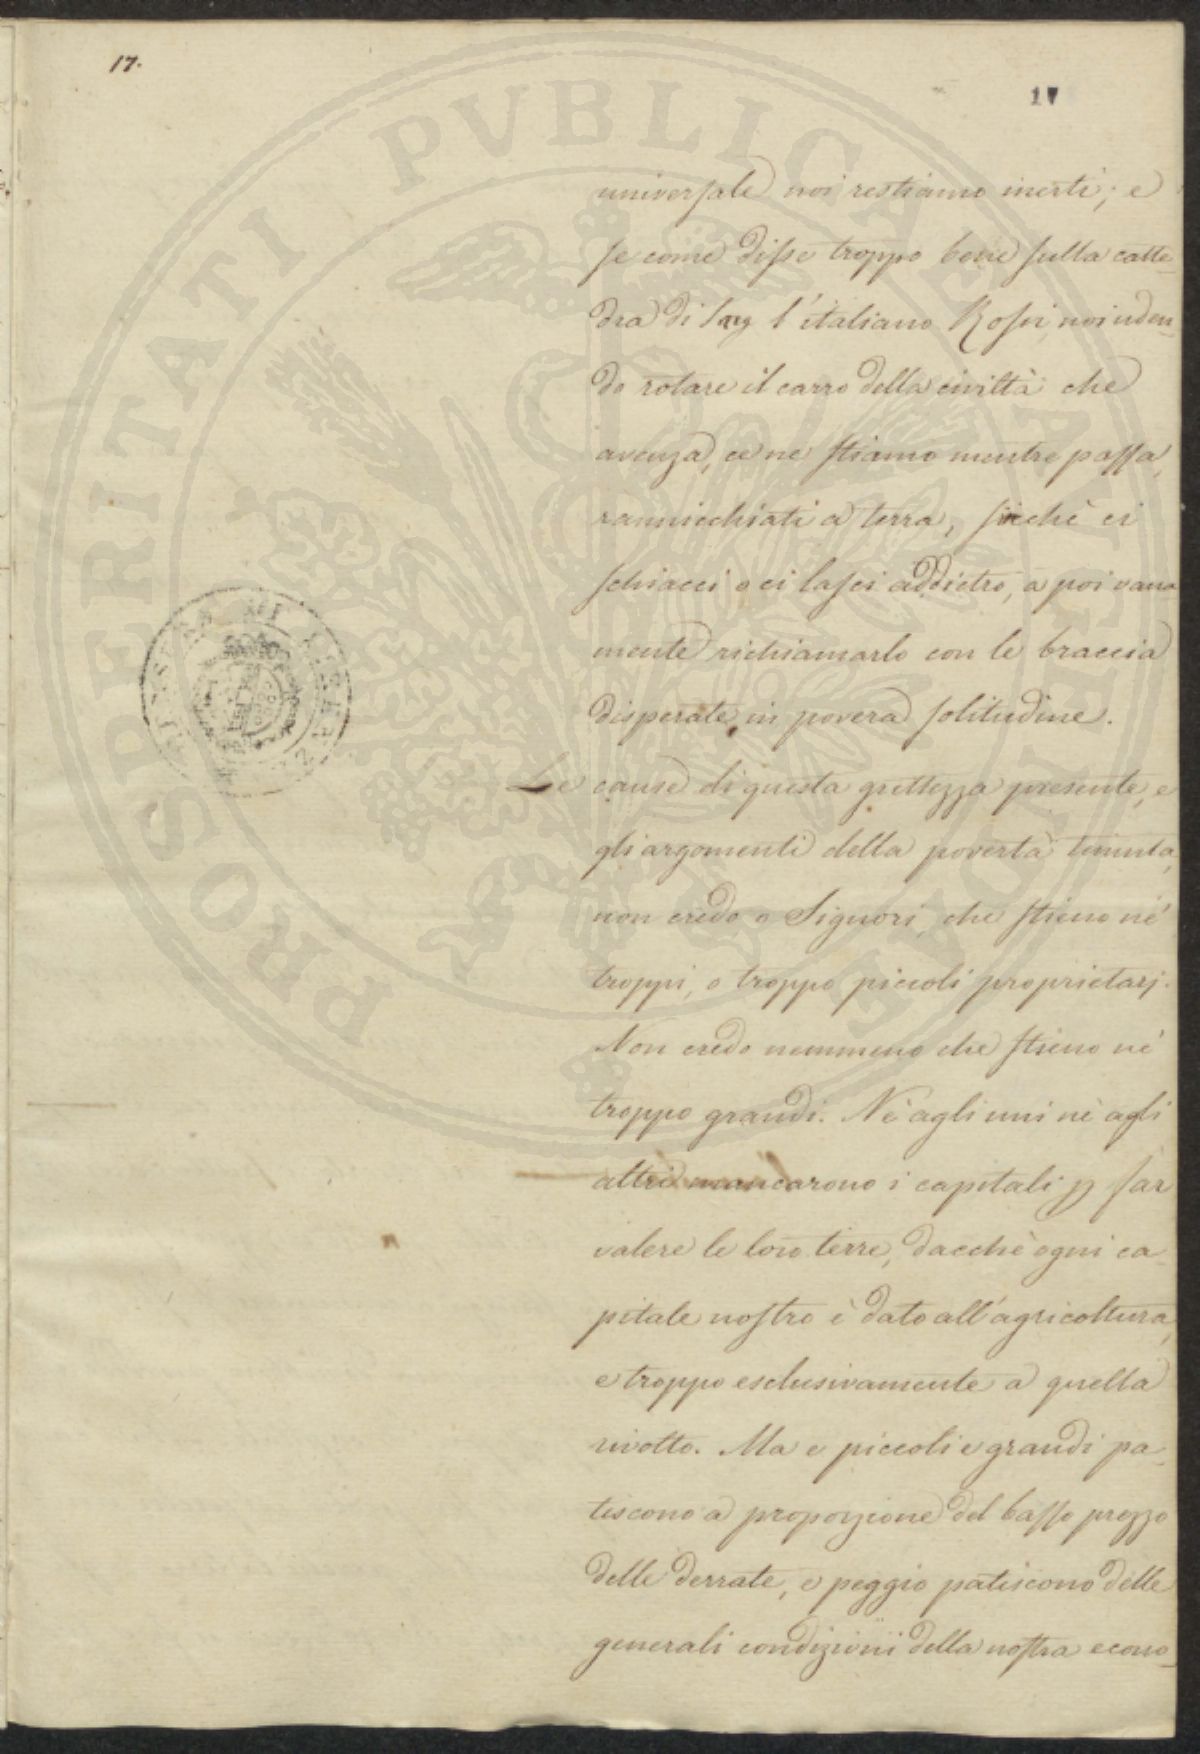 17.
17
universale noi restiamo inerti; e
se come disse troppo bene sulla catte-
dra di Say l'italiano Rossi, noi uden-
do rotare il carro della civiltà che
avanza, ce ne stiamo mentre passa,
rannicchiati a terra, finchè ci
schiacci o ci lasci addietro, a poi vana
mente richiamarlo con le braccia
disperate in povera solitudine.
Le cause di questa grettezza presente, e
gli argomenti della povertà temuta,
non credo o Signori, che stieno nè
troppi, o troppo piccoli proprietarj.
Non credo nemmeno che stieno nè
troppo grandi. Nè agli uni nè agli
altri mancarono i capitali p far
valere le loro terre, dacchè ogni ca-
pitale nostro è dato all'agricoltura,
e troppo esclusivamente a quella
rivolto. Ma e piccoli e grandi pa-
tiscono a proporzione del basso prezzo
delle derrate, e peggio patiscono delle
generali condizioni della nostra econo-
PROSPERITATI PVBLICAE AVGENDAE